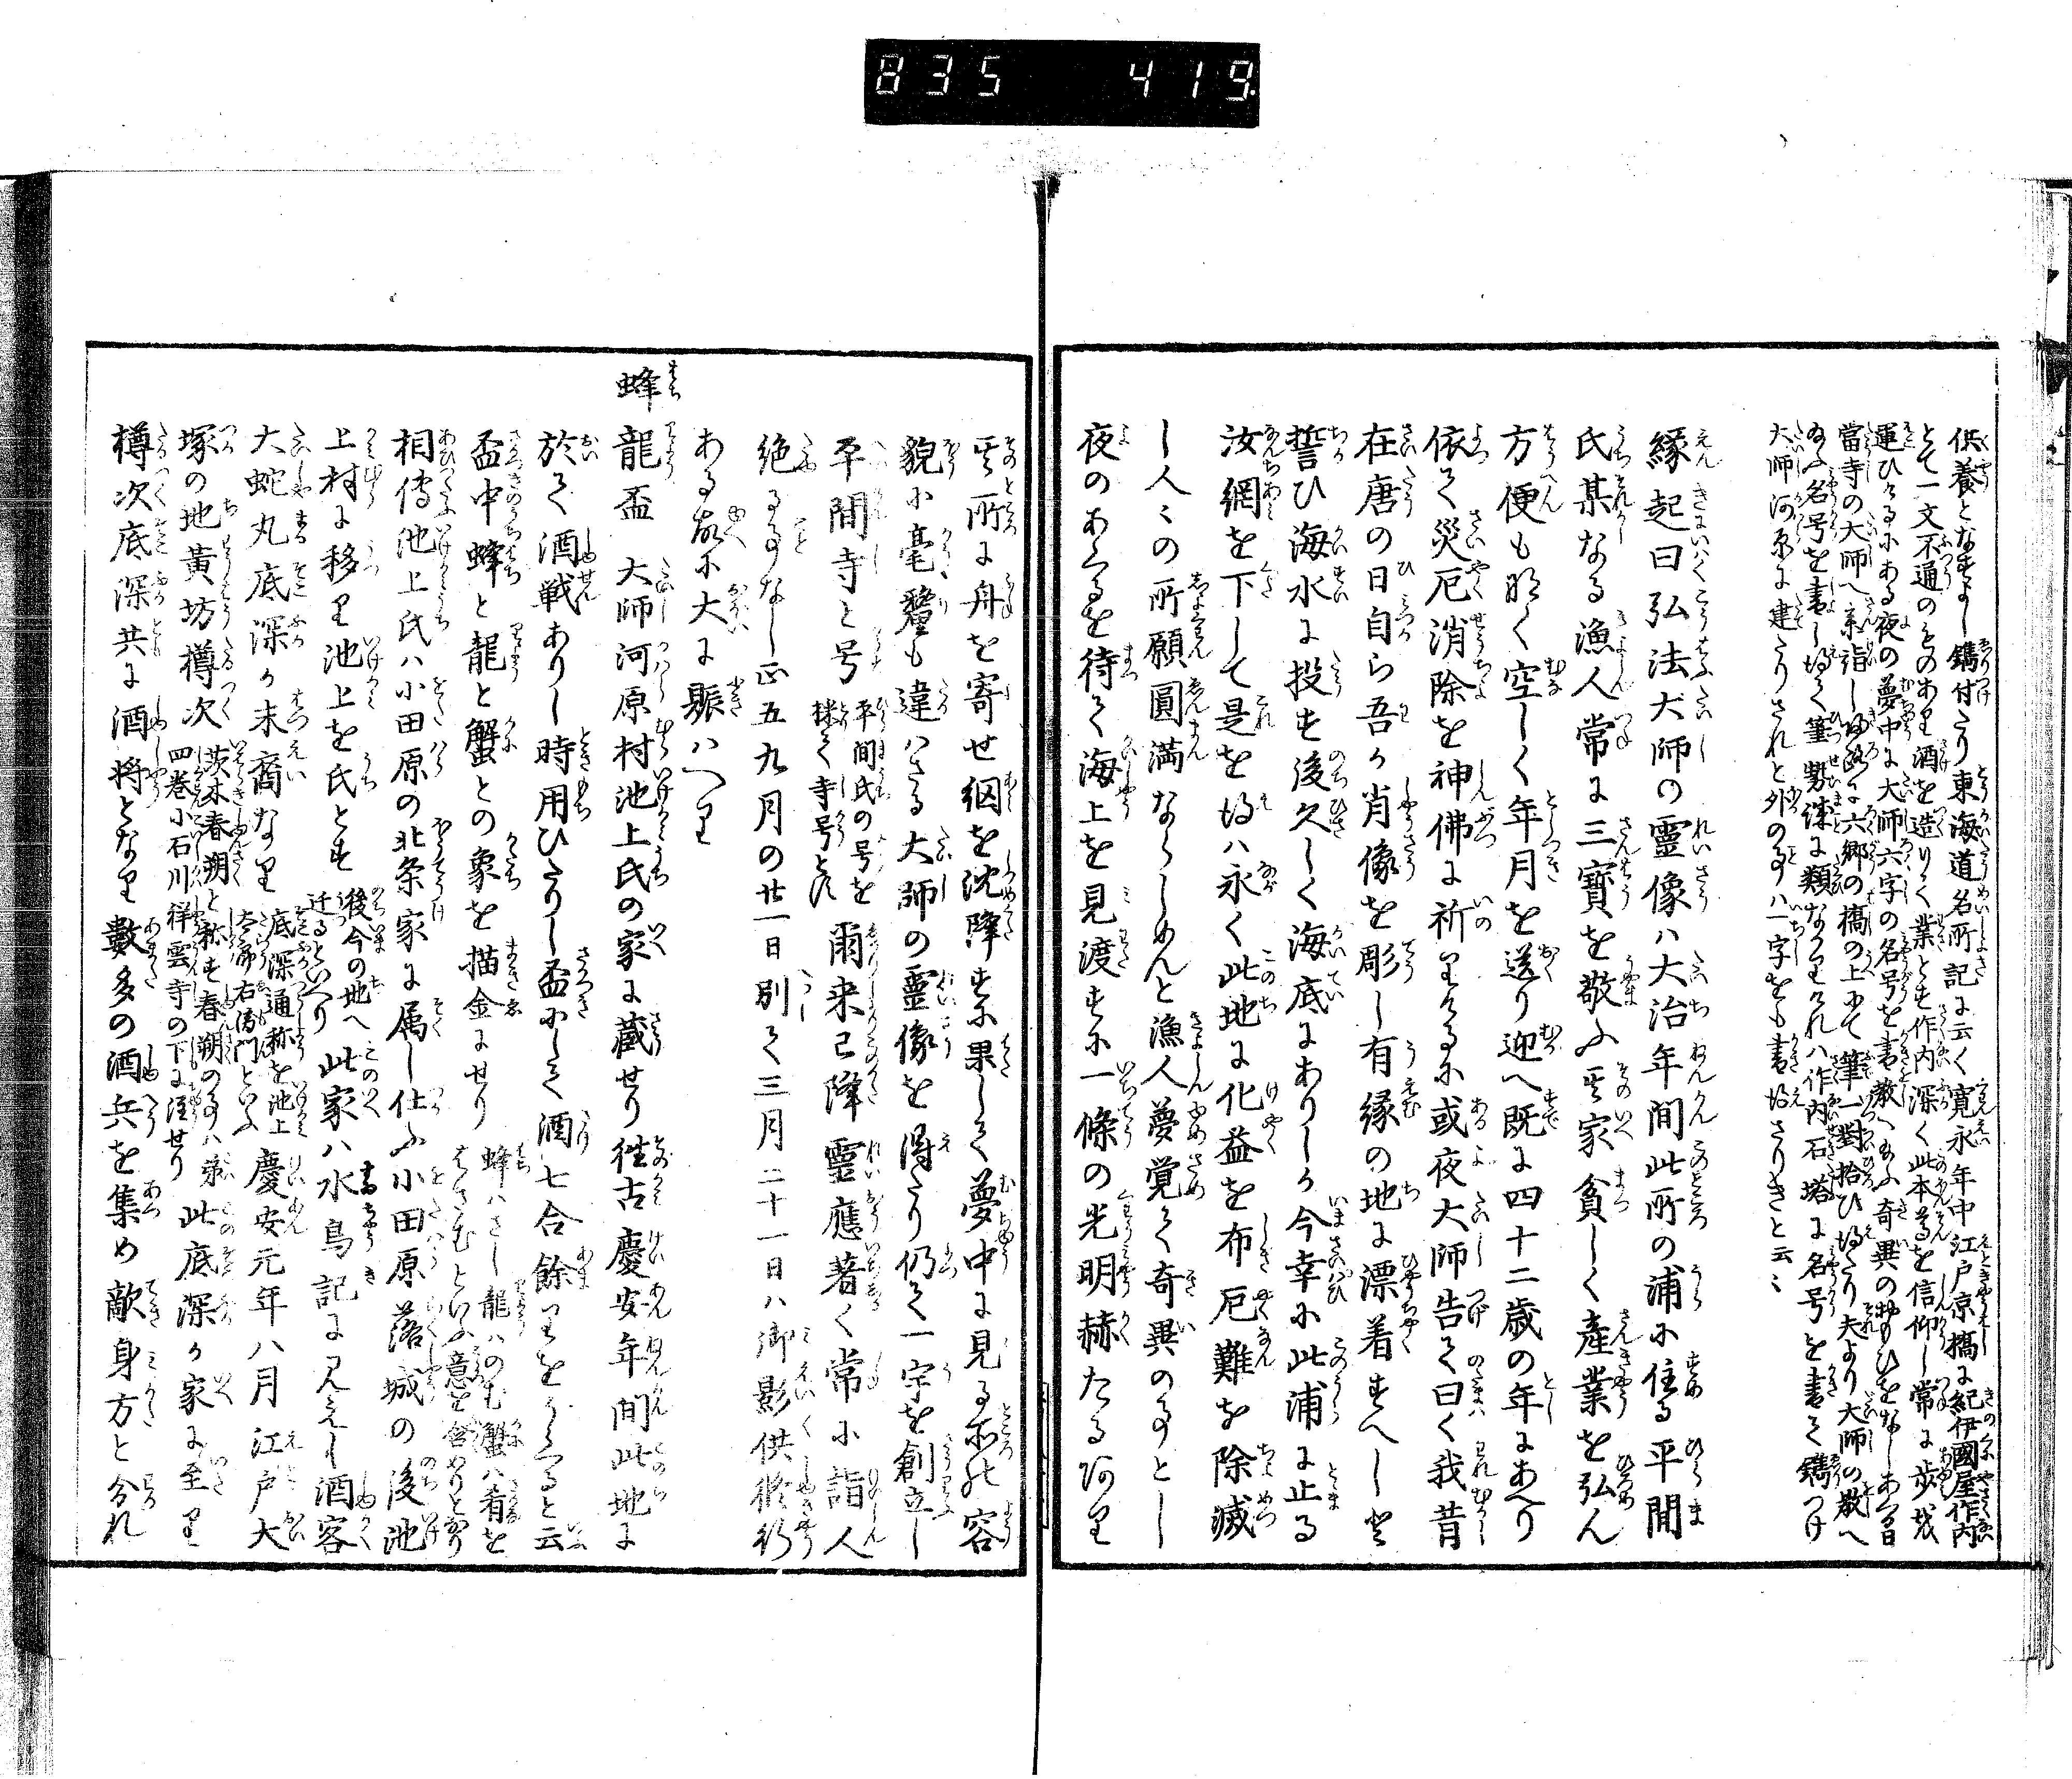 835 419
供養となすよし鐫付たり東海道名所記に云く寛永年中江戸京橋に紀伊國屋作内
とて一文不通のものあり酒を造りて業とす作内深く此本尊を信仰し常に歩を
運ひけるにある夜の夢中に大師六字の名号を書教へ給ふ奇異の思ひをなしあくる日
當寺の大師へ参詣し帰路に六郷の橋の上にて筆一對拾ひ得たり夫より大師の教へ
給ふ名号を書し得て筆勢誠に類なかりけれハ作内石塔に名号を書て鐫つけ
大師河原に建たりされと外の事ハ一字をも書得さりきと云〻
縁起曰弘法大師の靈像ハ大治年間此所の浦に住る平間
氏某なる漁人常に三寶を敬ふ其家貧しく産業を弘ん
方便も那く空しく年月を送り迎へ既に四十二歳の年にあへり
依て災厄消除を神佛に祈りけるに或夜大師告て曰く我昔
在唐の日自ら吾か肖像を彫し有縁の地に漂着すへしと
誓ひ海水に投す後久しく海底にありしか今幸に此浦に止る
汝網を下して是を得ハ永く此地に化益を布厄難を除滅
し人〻の所願圓満ならしめんと漁人夢覚て奇異の事とし
夜のあくるを待て海上を見渡すに一條の光明赫たる所り
其所に舟を寄せ網を沈降すに果して夢中に見る所の容
貌に毫釐も違ハさる大師の靈像を得たり仍て一宇を創立し
平間寺と号 平間氏の号を
採て寺号とす 爾来已降靈應著く常に詣人
絶る事なし正五九月の廿一日別て三月二十一日ハ御影供修行
ある故に大に賑ハへり
蜂龍盃 大師河原村池上氏の家に蔵せり往古慶安年間此地に
於て酒戦ありし時用ひたりし盃にして酒七合餘りをうくると云
盃中蜂と龍と蟹との象を描金にせり 蜂ハさし龍ハのむ蟹ハ肴を
はさむといふ意を含めりとなり
相傳池上氏ハ小田原の北条家に属し仕ふ小田原落城の後池
上村に移り池上を氏とす 後今の地へ
迁るといへり 此家ハ水鳥記に見えし酒客
大蛇丸底深か末裔なり 底深通称を池上
太郎右衛門といふ 慶安元年八月江戸大
塚の地黄坊樽次 茨木春朔と称す春朔の事ハ第
四巻小石川祥雲寺の下に注せり 此底深か家に至り
樽次底深共に酒将となり數多の酒兵を集め敵身方と分れ